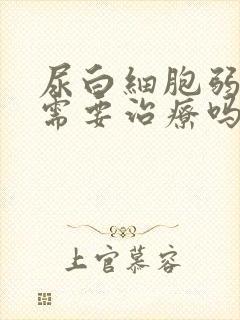 尿白細胞弱
需要治療嗎
上官慕容